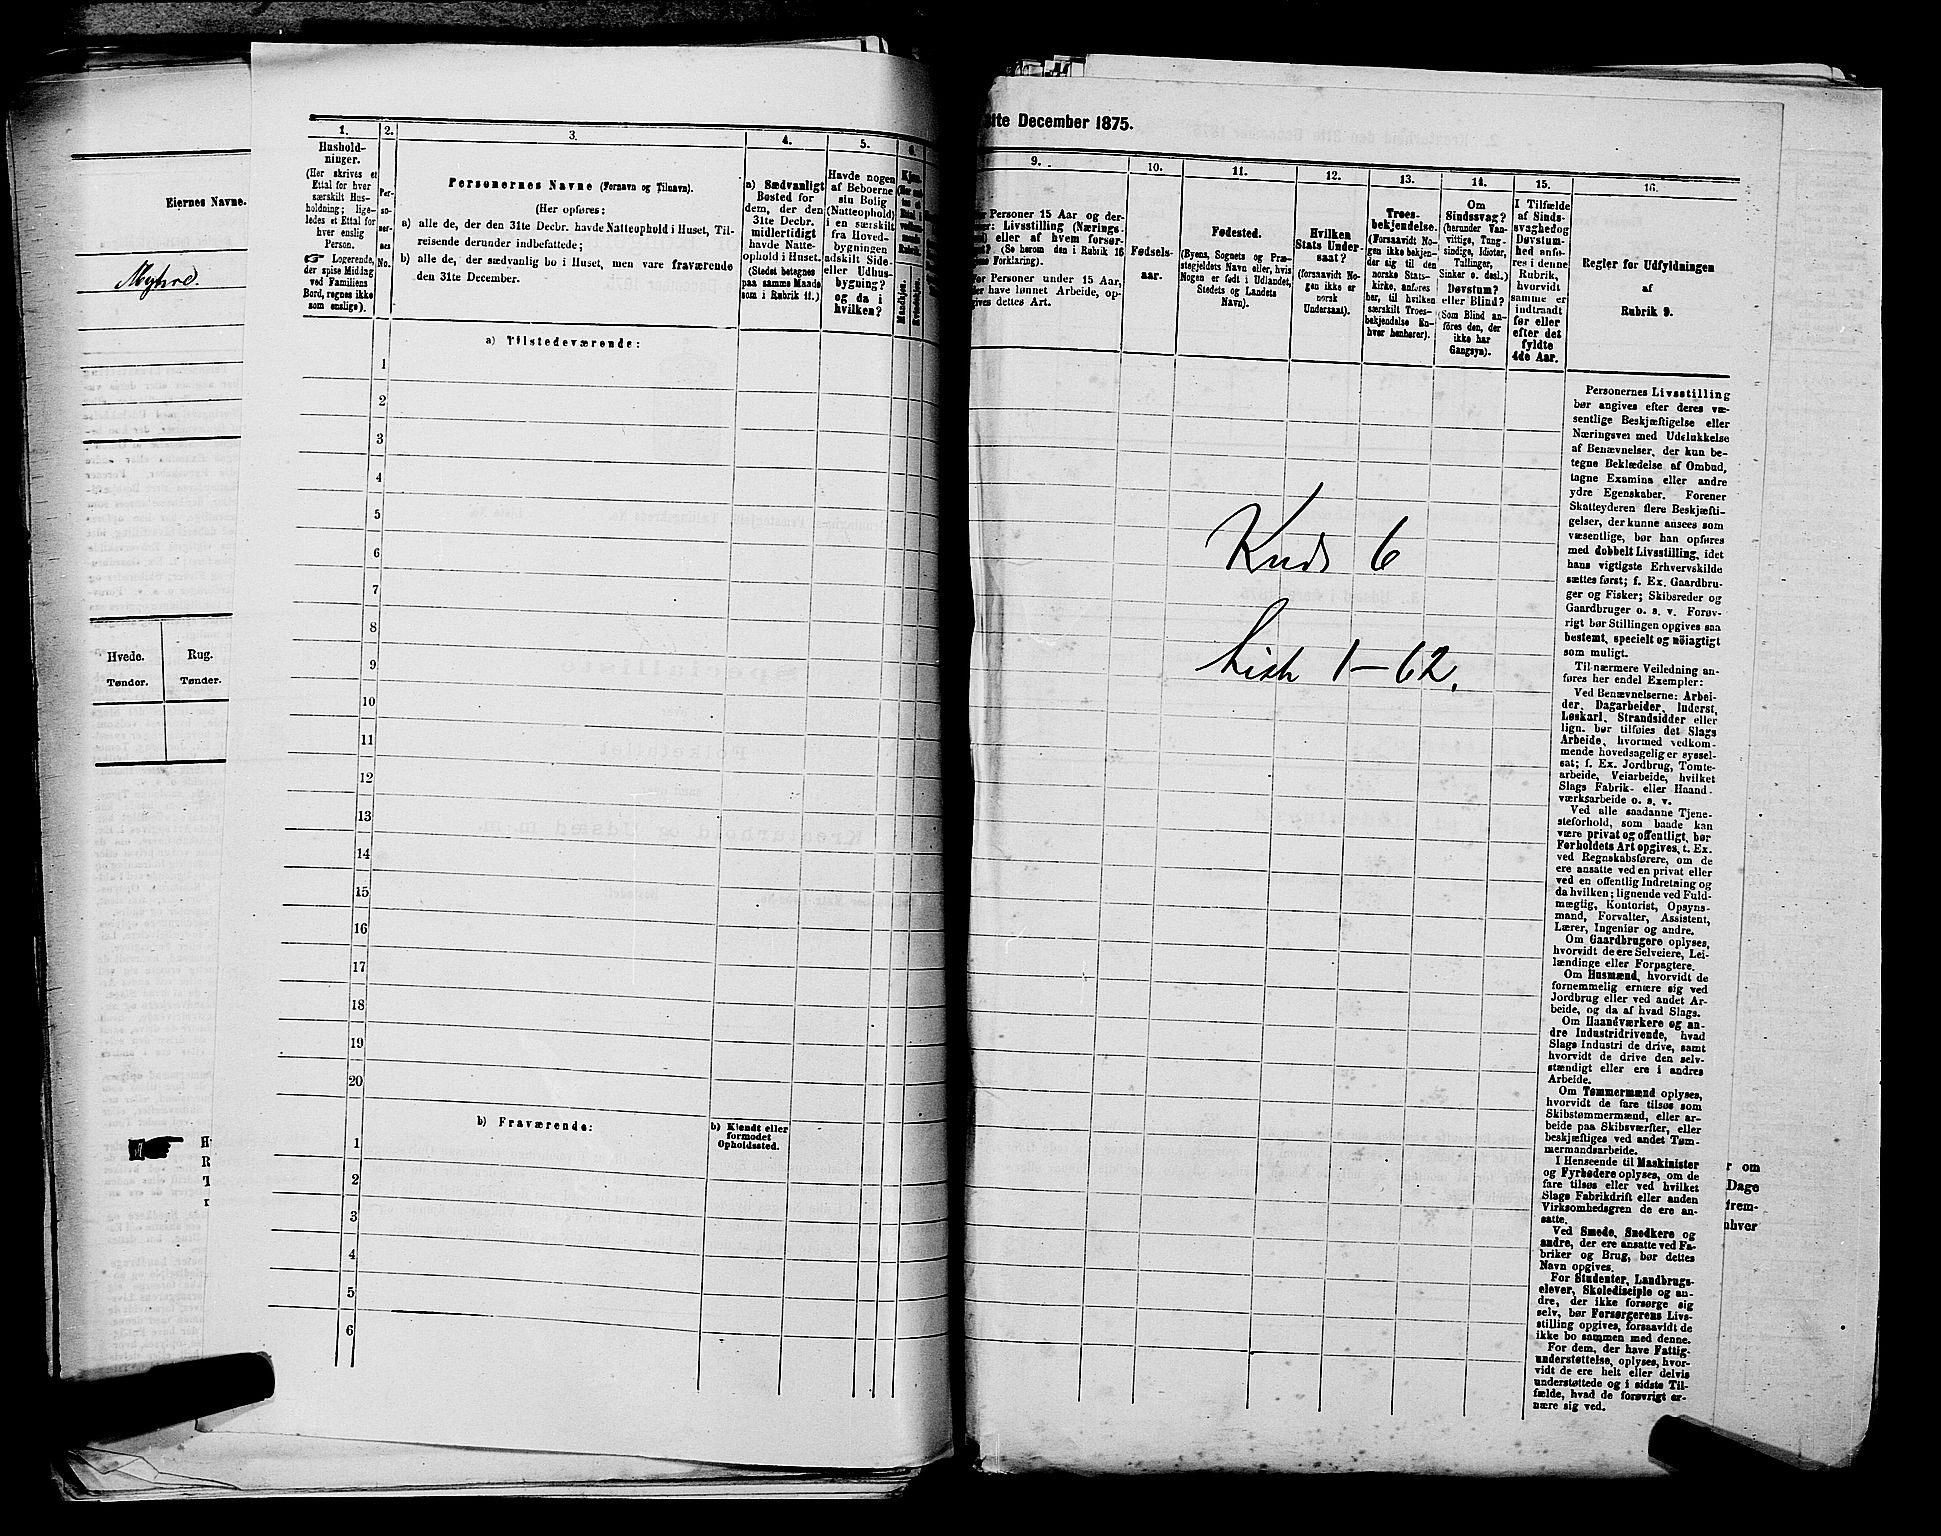 Eiernes Navne.
Myhre.
Hvede.
Rug.
Tønder.
Tønder.
1.
Hushold-
ninger.
(Her skrives et
Ettal for hver
særskilt Hus-
holdning; lige-
ledes et Ettal for
hver enslig
Person.
☞ Logerende,
der spise Middag
ved Familiens
Bord, regnes ikke
som enslige).
2.
Per-
so-
ner-
nes
No.
3.
Personernes Navne (Fornavn og Tilnavn).
(Her opføres:
a) alle de, der den 31te Decbr. havde Natteophold i Huset, Til-
reisende derunder indbefattede;
b) alle de, der sædvanlig bo i Huset, men vare fraværende
den 31te December.
4.
a) Sædvanligt
Bosted for
dem, der den
31te Decbr.
midlertidigt
havde Natte-
ophold i Huset.
(Stedet betegnes
paa samme Maade
som i Rubrik 11.)
5.
Havde nogen
af Beboerne
sin Bolig
(Natteophold)
i en særskilt
fra Hoved-
bygningen
adskilt Side-
eller Udhus-
bygning?
og da i
hvilken?
6.
Kjøn.
Mandkjøn.
Kvindekjøn.
a) Tilstedeværende:
1
2
3
4
5
6
7
8
9
10
11
12
13
14
15
16
17
18
19
20
b) Fraværende:
b) Kjendt eller
formodet
Opholdssted.
1
2
3
4
5
6
31te December 1875.
9.
Personer 15 Aar og der-
Livsstilling (Nærings-
eller af hvem forsør-
(Se herom den i Rubrik 16
Forklaring).
For Personer under 15 Aar,
der have lønnet Arbeide, op-
gives dettes Art.
10.
Fødsels-
aar.
11.
Fødested.
(Byens, Sognets og Præ-
stegjeldets Navn eller, hvis
Nogen er født i Udlandet,
Stedets og Landets
Navn).
12.
Hvilken
Stats Under-
saat?
(forsaavidt No-
gen ikke er
norsk
Undersaat).
13.
Troes-
bekjendelse.
(Forsaavidt No-
gen ikke bekjen-
der sig til den
norske Stats-
kirke, anføres
her, til hvilken
særskilt Troes-
bekjendelse En-
hver henhører).
14.
Om
Sindssvag?
(herunder Van-
vittige, Tung-
sindige, Idioter,
Tullinger,
Sinker o. desl.)
Døvstum?
eller Blind?
(Som Blind an-
føres den, der
ikke har
Gangsyn).
15.
I Tilfælde
af Sinds-
svaghed og
Døvstum-
hed anfø-
res i denne
Rubrik,
hvorvidt
samme er
indtraadt
før eller
efter det
fyldte
4de Aar.
16.
Regler for Udfyldningen
af
Rubrik 9.
Kreds 6
Liste 1–62.
Personernes Livsstilling
bør angives efter deres væ-
sentlige Beskjæftigelse eller
Næringsvei med Udelukkelse
af Benævnelser, der kun be-
tegne Beklædelse af Ombud,
tagne Examina eller andre
ydre Egenskaber. Forener
Skatteyderen flere Beskjæfti-
gelser, der kunne ansees som
væsentlige, bør han opføres
med dobbelt Livsstilling, idet
hans vigtigste Erhvervskilde
sættes først; f. Ex. Gaardbru-
ger og Fisker; Skibsreder og
Gaardbruger o. s. v. Forøv-
rigt bør Stillingen opgives saa
bestemt, specielt og nöiagtigt
som muligt.
Til nærmere Veiledning an-
føres her endel Exempler:
Ved Benævnelserne: Arbei-
der, Dagarbeider, Inderst,
Løskarl, Strandsidder eller
lign. bør tilføies det Slags
Arbeide, hvormed vedkom-
mende hovedsagelig er syssel-
sat; f. Ex. Jordbrug, Tomte-
arbeide, Veiarbeide, hvilket
Slags Fabrik- eller Haand-
værksarbeide o. s. v.
Ved alle saadanne Tjene-
steforhold, som baade kan
være privat og offentligt, bør
Forholdets Art opgives, t. Ex.
ved Regnskabsførere, om de
ere ansatte ved en privat eller
ved en offentlig Indretning og
da hvilken; lignende ved Fuld-
mægtig, Kontorist, Opsyns-
mand, Forvalter, Assistent,
Lærer, Ingeniør og andre.
Om Gaardbrugere oplyses,
hvorvidt de ere Selveiere, Lei-
lændinge eller Forpagtere.
Om Husmænd, hvorvidt de
fornemmelig ernære sig ved
Jordbrug eller ved andet Ar-
beide, og da af hvad Slags.
Om Haandværkere og an-
dre Industridrivende, hvad
Slags Industri de drive, samt
hvorvidt de drive den selv-
stændigt eller ere i andres
Arbeide.
Om Tømmermænd oplyses,
hvorvidt de fare tilsøs som
Skibstømmermænd, eller ar-
beide paa Skibsværfter, eller
beskjæftiges ved andet Tøm-
mermandsarbeide.
I Henseende til Maskinister
og Fyrbødere oplyses, om de
fare tilsøs eller ved hvilket
Slags Fabrikdrift eller anden
Virksomhedsgren de ere an-
satte.
Ved Smede, Snedkere og
andre, der ere ansatte ved Fa-
briker og Brug, bør dettes
Navn opgives.
For Studenter, Landbrugs-
elever, Skoledisciple og an-
dre, der ikke forsørge sig
selv, bør Forsørgerens Livs-
stilling opgives, forsaavidt de
ikke bo sammen med denne.
For dem, der have Fattig-
understøttelse, oplyses, hvor-
vidt de ere helt eller delvis
understøttede og i sidste Til-
fælde, hvad de forøvrigt er-
nære sig ved.
r om
Dage
frem-
nhver